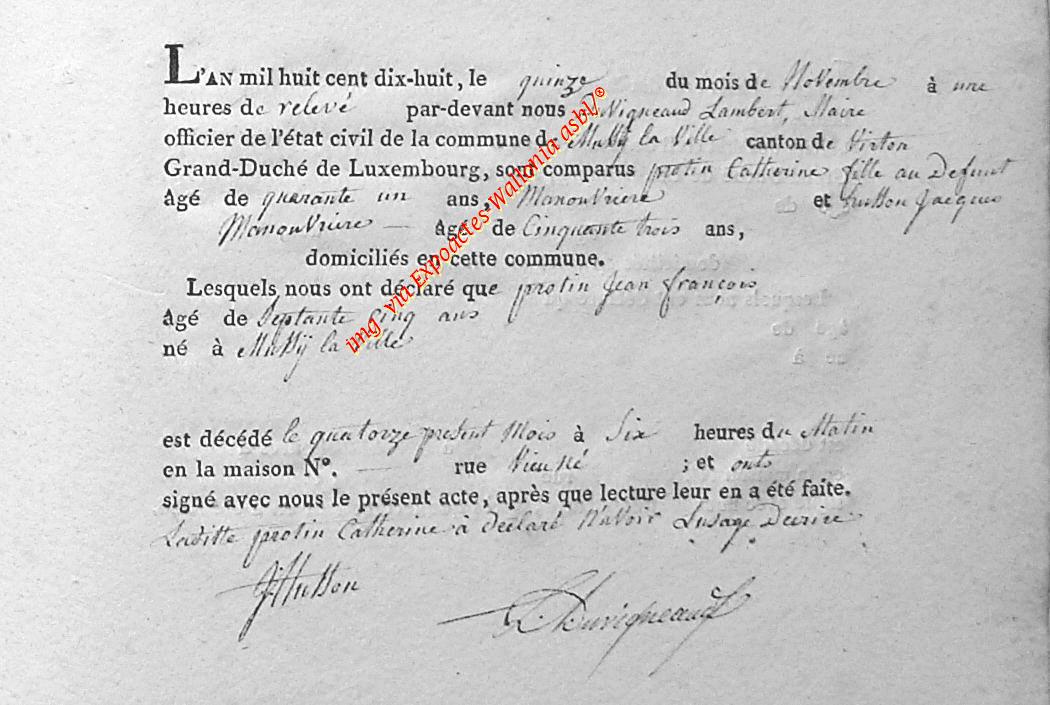 L'AN mil huit cent dix-huit, le quinze du mois de Novembre à une
heures de relevé par-devant nous Vigneaud Lambert, Maire
officier de l'état civil de la commune de Mussy la Ville canton de Virton
Grand-Duché de Luxembourg, sont comparus protin Catherine fille au Defunt
Agé de quarante un ans, Manouvriere et husson Jacques
Manouvriere — Agé de Cinquante trois ans,
domiciliés en cette commune.
Lesquels nous ont déclaré que protin Jean françois
Agé de Septante Cinq ans
né à Mussÿ la Ville
est décédé le quatorze present Mois à Six heures du Matin
en la maison N°. — rue ; et onts
signé avec nous le présent acte, après que lecture leur en a été faite.
Laditte protin Catherine à Declaré N'avoir Lusage Decrire
J Husson
Duvigneaud
img via Expoactes Wallonia asbl/®